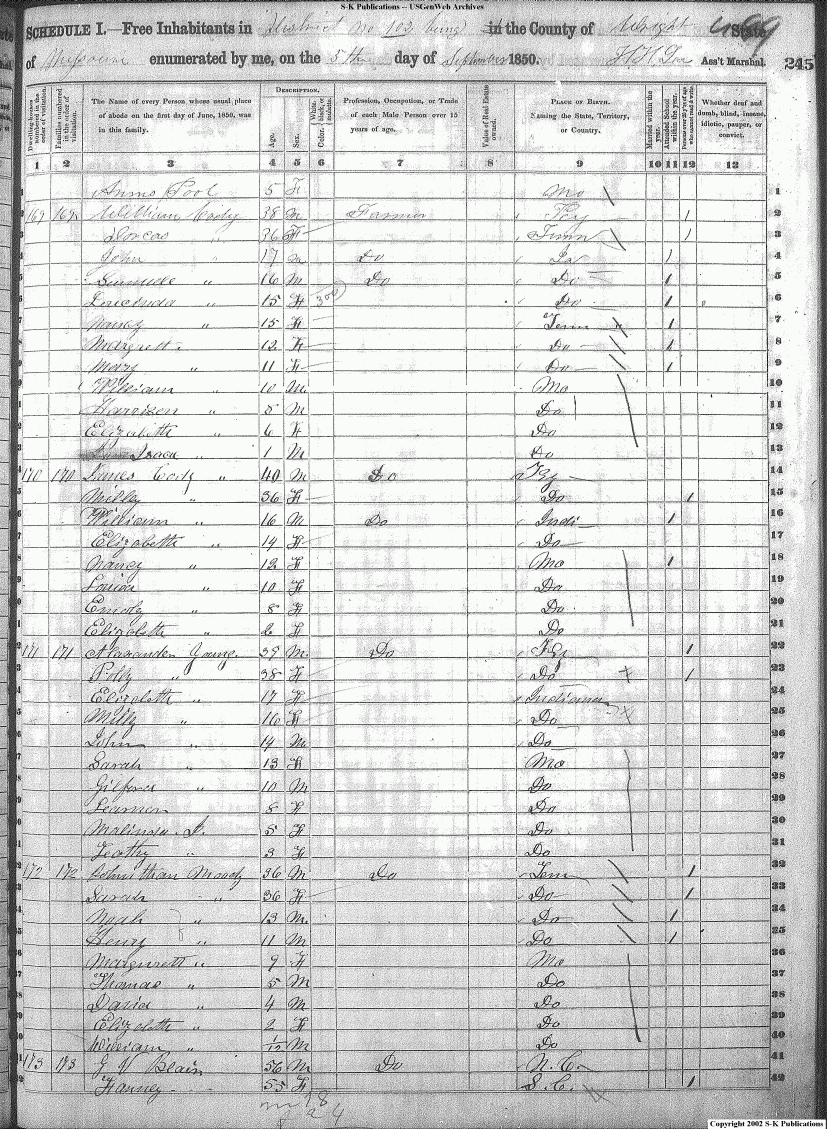 S-K Publications -- USGenWeb Archives
SCHEDULE I.—Free Inhabitants in District No 102 being in the County of Wright State
of Missouri enumerated by me, on the 5th day of September 1850. Ass't Marshal. 245
DESCRIPTION.
Dwelling-houses numbered in the order of visitation. Families numbered in the order of visitation. The Name of every Person whose usual place of abode on the first day of June, 1850, was in this family. Age. Sex. Color, White, black, or mulatto. Profession, Occupation, or Trade of each Male Person over 15 years of age. Value of Real Estate owned. PLACE OF BIRTH. Naming the State, Territory, or Country. Married within the year. Attended School within the year. Persons over 20 y'rs of age who cannot read & write. Whether deaf and dumb, blind, insane, idiotic, pauper, or convict.
1 2 3 4 5 6 7 8 9 10 11 12 13
Pool 5 F Mo 1
169 169 William Cody 38 M Farmer Ky / 2
Dorcas " 36 F Tenn / 3
John " 17 M Do Ia / 4
" 16 M Do Do / 5
Loucinda " 15 F 300 Do / 6
Nancy " 15 F Tenn / 7
Margrett " 12 F Do / 8
Mary " 11 F Do / 9
William " 10 M Mo 10
Harrison " 8 M Do 11
Elizabeth " 6 F Do 12
Isaac " 1 M Do 13
170 170 James Cody " 40 M Do Ky 14
Milly " 36 F Do / 15
William " 16 M Do Indi / 16
Elizabeth " 14 F Do 17
Nancy " 12 F Mo / 18
Louisa " 10 F Do 19
Emily " 8 F Do 20
Elizabeth " 2 F Do 21
171 171 Alexander Young 39 M Do Ky / 22
Polly " 38 F Do / 23
Elizabeth " 17 F Indiana 24
Milly " 16 F Do 25
John " 14 M Do 26
Sarah " 13 F Mo 27
Gilford " 10 M Do 28
" 8 F Do 29
Malinda J. 5 F Do 30
" 3 F Do 31
172 172 Johnathan Moody 36 M Do Tenn / 32
Sarah " 36 F Do / 33
Noah " 13 M Do / 34
Henry " 11 M Do / 35
Margurett " 9 F Mo 36
Thomas " 5 M Do 37
David " 4 M Do 38
Elizabeth " 2 F Do 39
William " 1/12 M Do 40
173 173 G V Blain 56 M Do N.C. 41
Fanney " 55 F S.C. / 42
Copyright 2002 S-K Publications